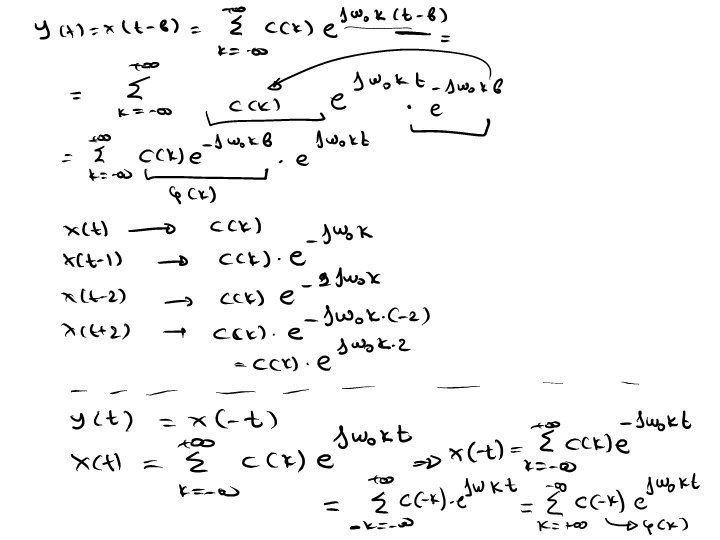 y(t) = x(t-б) = Σ_{k=-∞}^{+∞} c(k) e^{jω₀k(t-б)} =
= Σ_{k=-∞}^{+∞} c(k) e^{jω₀kt} · e^{-jω₀kб}
= Σ_{k=-∞}^{+∞} c(k) e^{-jω₀kб} · e^{jω₀kt}
φ(k)
x(t) → c(k)
x(t-1) → c(k) · e^{-jω₀k}
x(t-2) → c(k) e^{-2jω₀k}
x(t+2) → c(k) · e^{-jω₀k·(-2)}
= c(k) · e^{jω₀k·2}
y(t) = x(-t)
x(t) = Σ_{k=-∞}^{+∞} c(k) e^{jω₀kt} ⇒ x(-t) = Σ_{k=-∞}^{+∞} c(k) e^{-jω₀kt}
= Σ_{-k=-∞}^{+∞} c(-k) · e^{jωkt} = Σ_{k=+∞}^{-∞} c(-k) e^{jω₀kt}
→ φ(k)